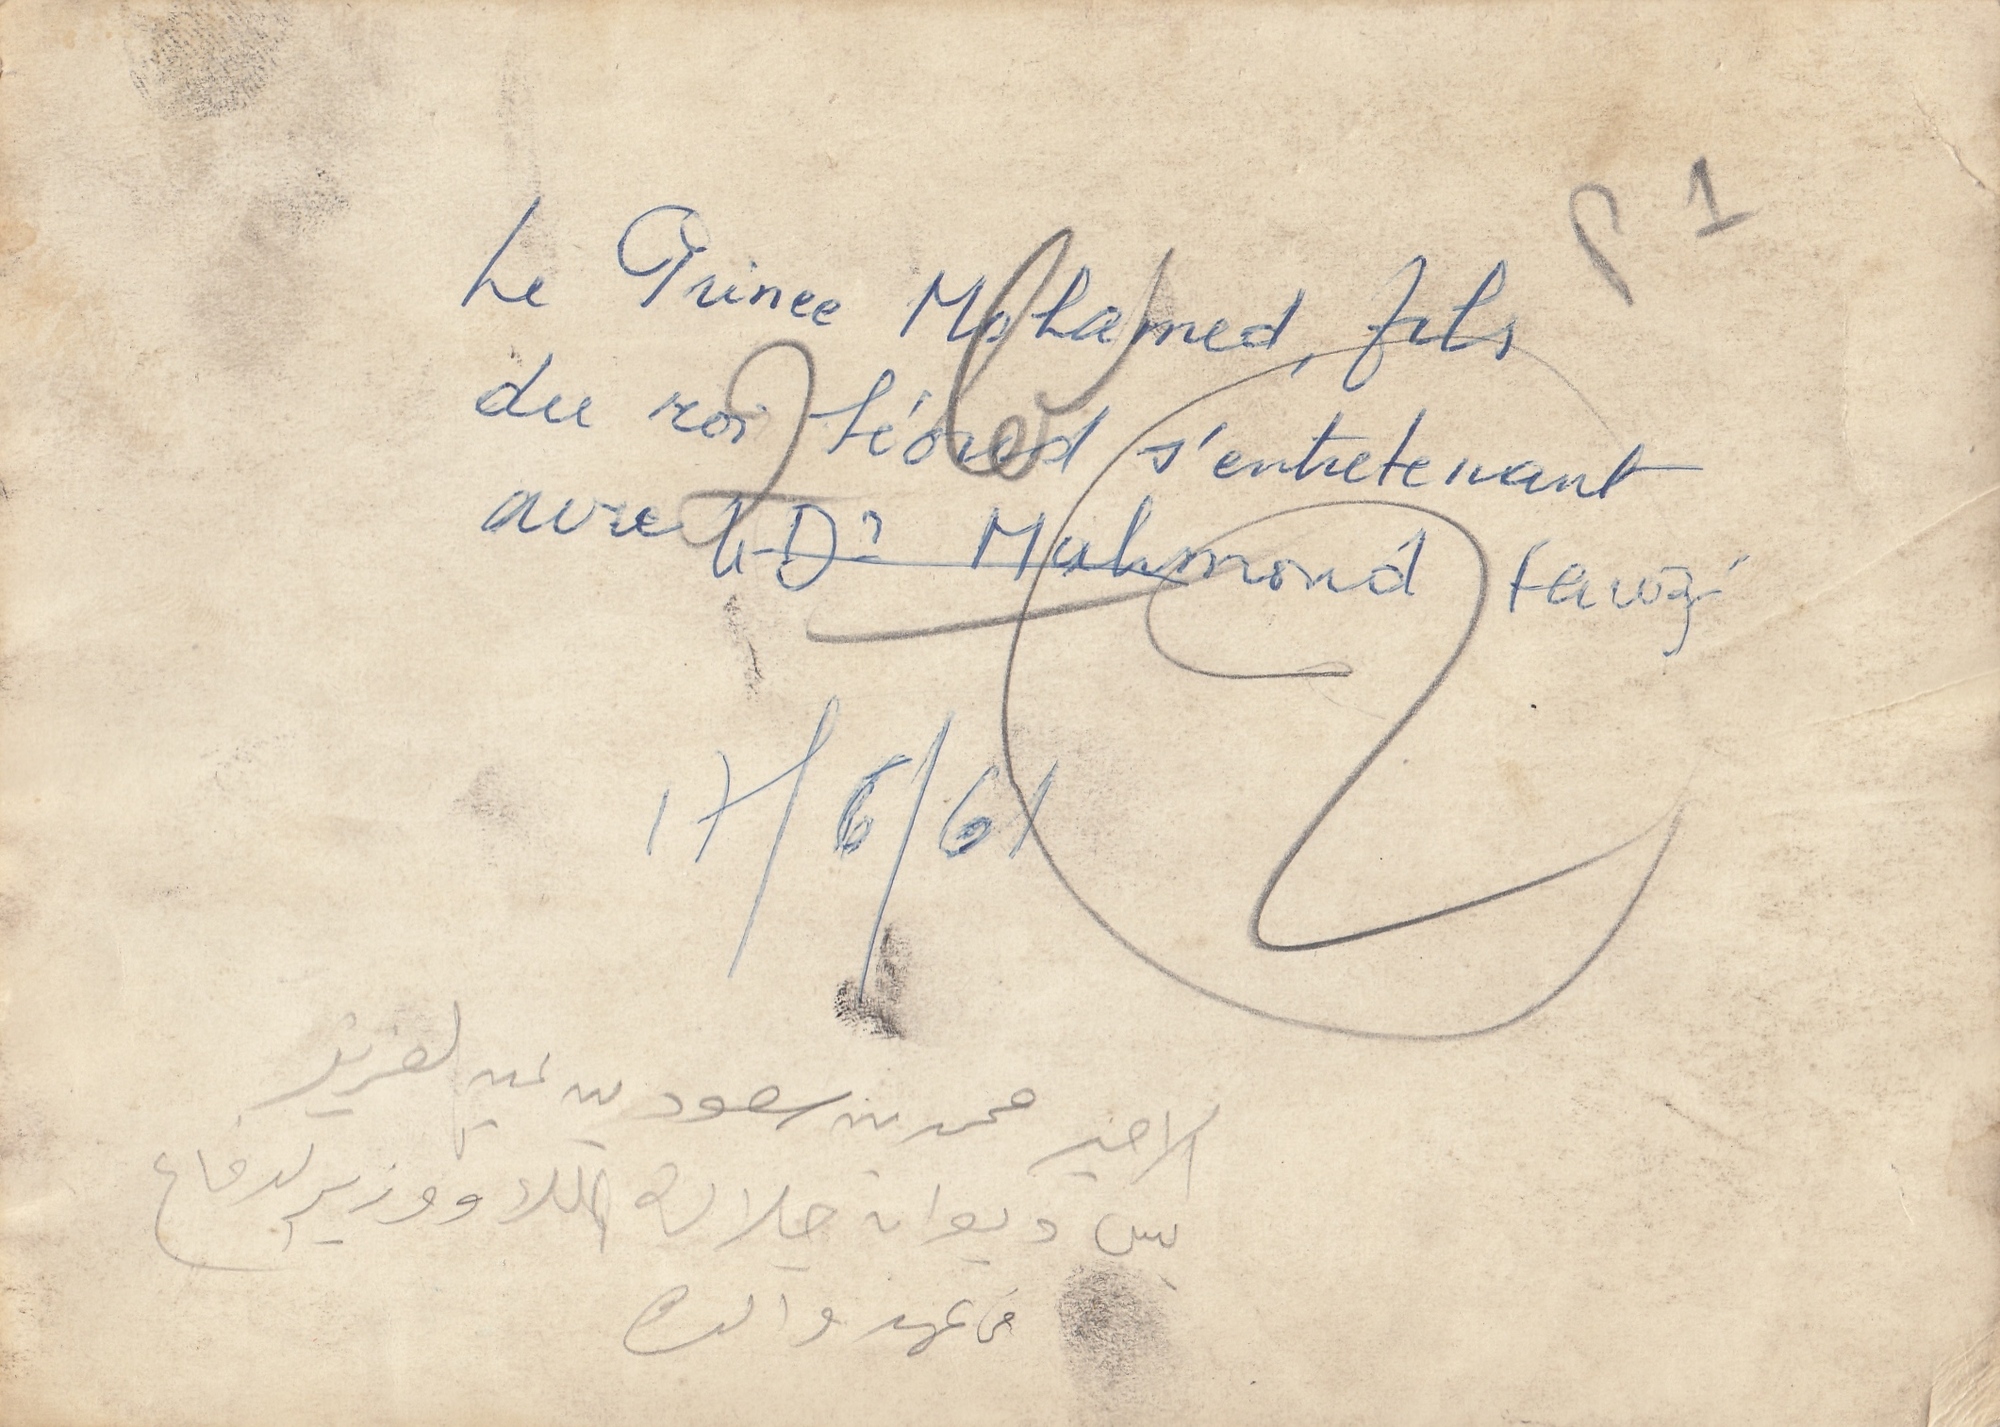 P 1
Le Prince Mohamed, fils
du roi Séoud s'entretenant
avec le Dr Mahmoud Fawzi
17/6/61
الامير محمد بن سعود بن عبد العزيز
ديوان جلالة الملك ووزير الدفاع
في عهد والده